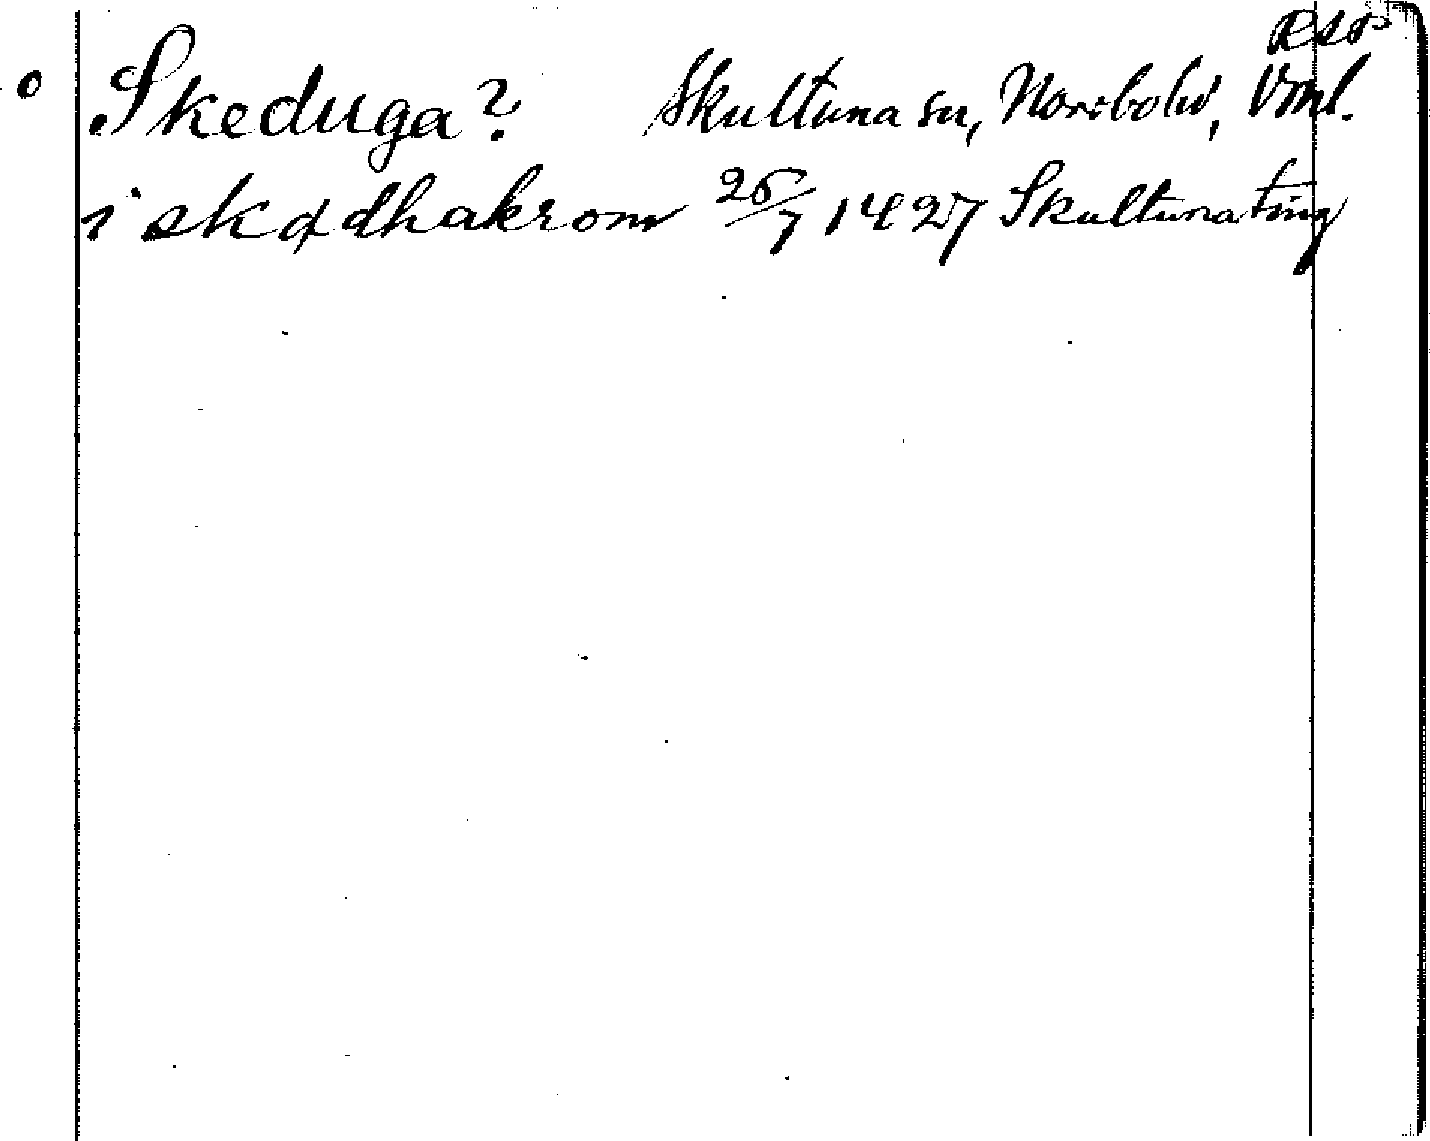 RSO
o Skeduga? Skultuna sn, Norrbohd, Vml.
i skødhakrom 25/7 1427 Skultuna ting